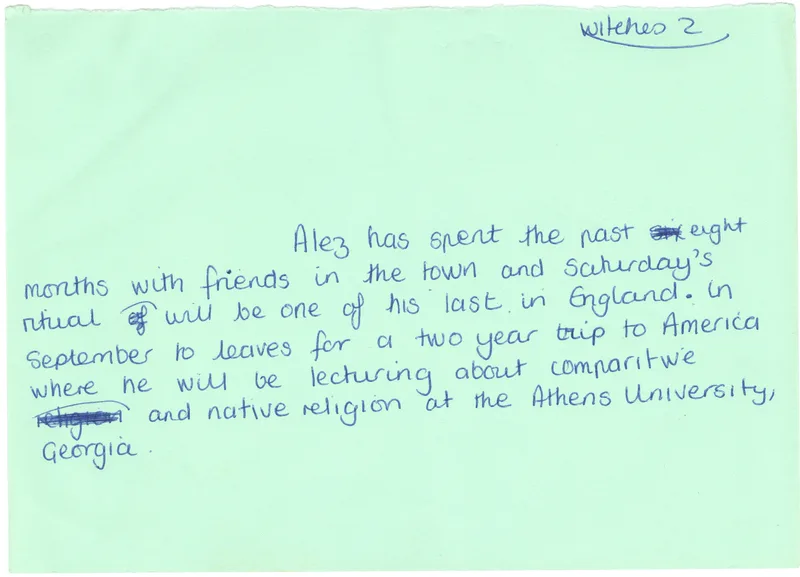 witches 2
Alez has spent the past six eight
months with friends in the town and Saturday's
ritual of will be one of his last in England. In
September to leaves for a two year trip to America
where he will be lecturing about comparitwe
religion and native religion at the Athens University,
Georgia.